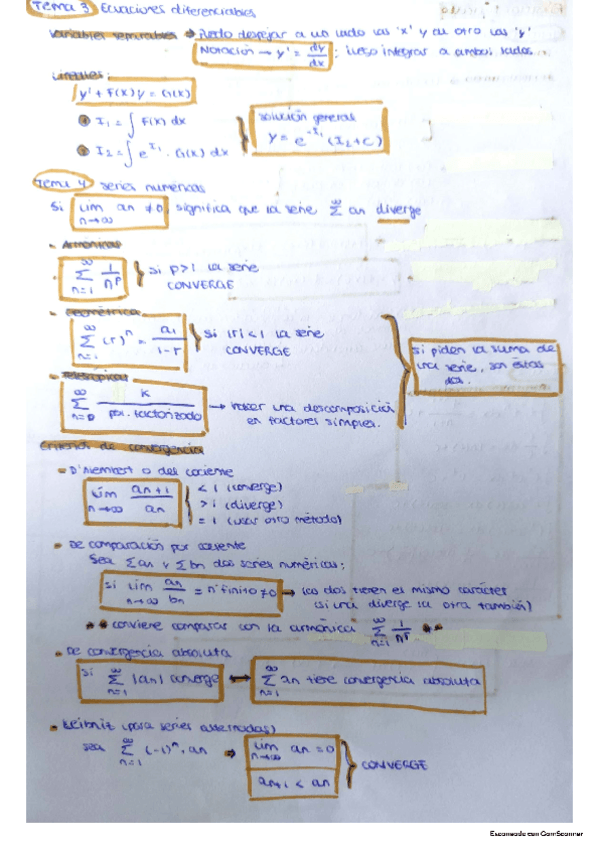 Tema 3 Ecuaciones diferenciables
Variables separables → Puedo despejar a un lado las 'x' y al otro las 'y'
Notación → y' = dy/dx ; luego integrar a ambos lados
Lineales:
y' + F(x)y = G(x)
I₁ = ∫ F(x) dx
I₂ = ∫ e^I₁ · G(x) dx
solución general
y = e^-I₁ (I₂+C)
Tema 4 series numéricas
Si lim n→∞ an ≠ 0, significa que la serie ∞ Σ an diverge
- Armónicas
∞ Σ n=1 1/n^p } si p>1 la serie CONVERGE
- Geométrica
∞ Σ n=1 (r)^n = a₁/1-r } Si |r|<1 la serie CONVERGE
- Telescópica
∞ Σ n=0 K/pol. factorizado → Hacer una descomposición en factores simples.
Si piden la suma de una serie, son estas dos.
Criterios de convergencia
- D'Alembert o del cociente
lim n→∞ an+1/an { < 1 (converge)
> 1 (diverge)
= 1 (usar otro método)
- De comparación por cociente
Sea Σan y Σbn dos series numéricas:
si lim n→∞ an/bn = nº finito ≠ 0 → las dos tienen el mismo carácter
(si una diverge la otra también)
** conviene comparar con la armónica ∞ Σ n=1 1/n^p **
- De convergencia absoluta
Si ∞ Σ n=1 |an| converge ↔ ∞ Σ n=1 an tiene convergencia absoluta
- Leibniz (para series alternadas)
sea ∞ Σ n=1 (-1)^n · an → lim n→∞ an = 0
an+1 < an } CONVERGE
Escaneado con CamScanner